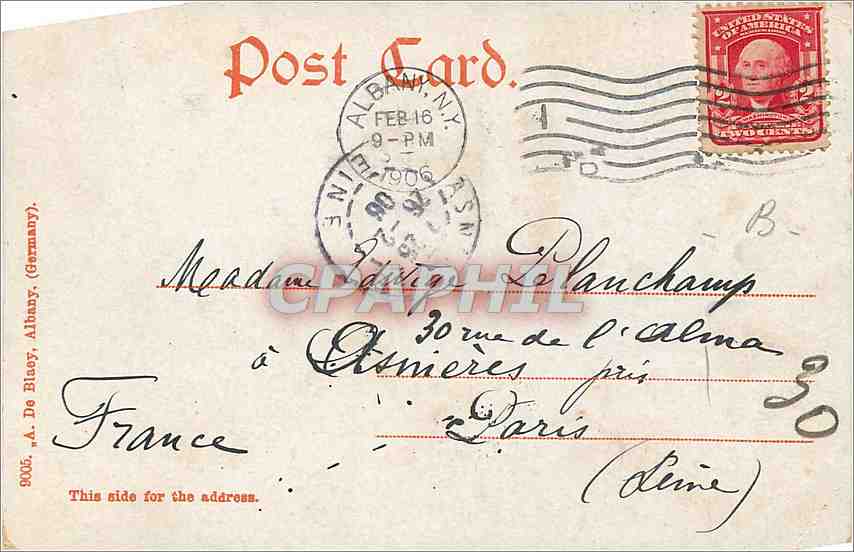 Post Card.
UNITED STATES
OF AMERICA
2 2
WASHINGTON
TWO CENTS
ALBANY, N.Y.
FEB 16
9-PM
1906
- B -
Madame Edwige Delanchamp
CPAPHIL
30 rue de l'Alma
à Asnières près
30
Paris
France
(Seine)
9005. „A. De Blaey, Albany, (Germany).
This side for the address.